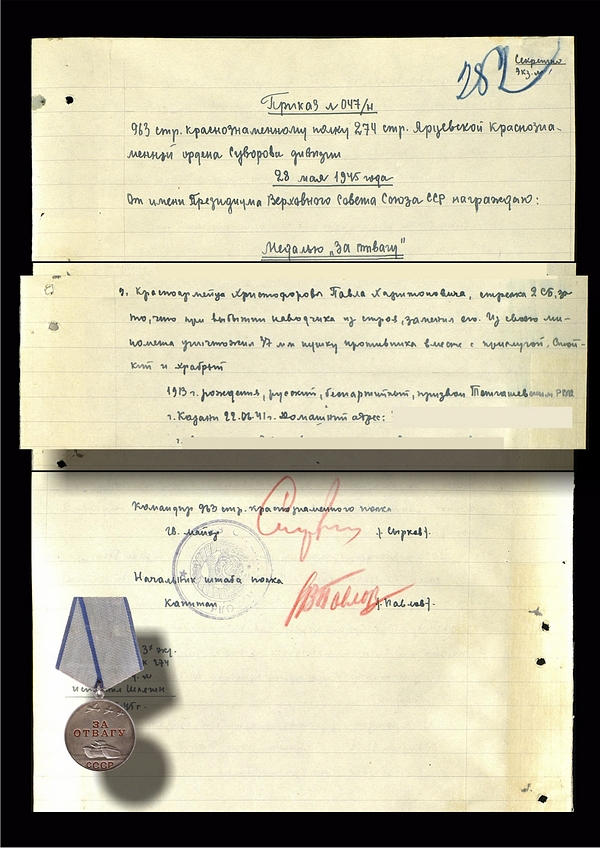 282
Секретно
Экз. № 1
Приказ № 047/н
963 стр. краснознаменному полку 274 стр. Ярцевской Краснозна-
менной ордена Суворова дивизии
28 мая 1945 года
От имени Президиума Верховного Совета Союза ССР награждаю:
Медалью „За отвагу"
9. Красноармейца Христофорова Павла Харитоновича, стрелка 2 СБ, за
то, что при выбытии наводчика из строя, заменил его. Из своего ми-
номета уничтожил 37 мм пушку противника вместе с прислугой. Стой-
кий и храбрый
1913 г. рождения, русский, беспартийный, призван РВК
г. Казани 22.06.41 г. Домашний адрес:
Командир 963 стр. краснознаменного полка
Гв. майор /Сырков/.
Начальник штаба полка
Капитан ВПавлов /Павлов/.
3х экз.
274
45 г.
ЗА
ОТВАГУ
СССР